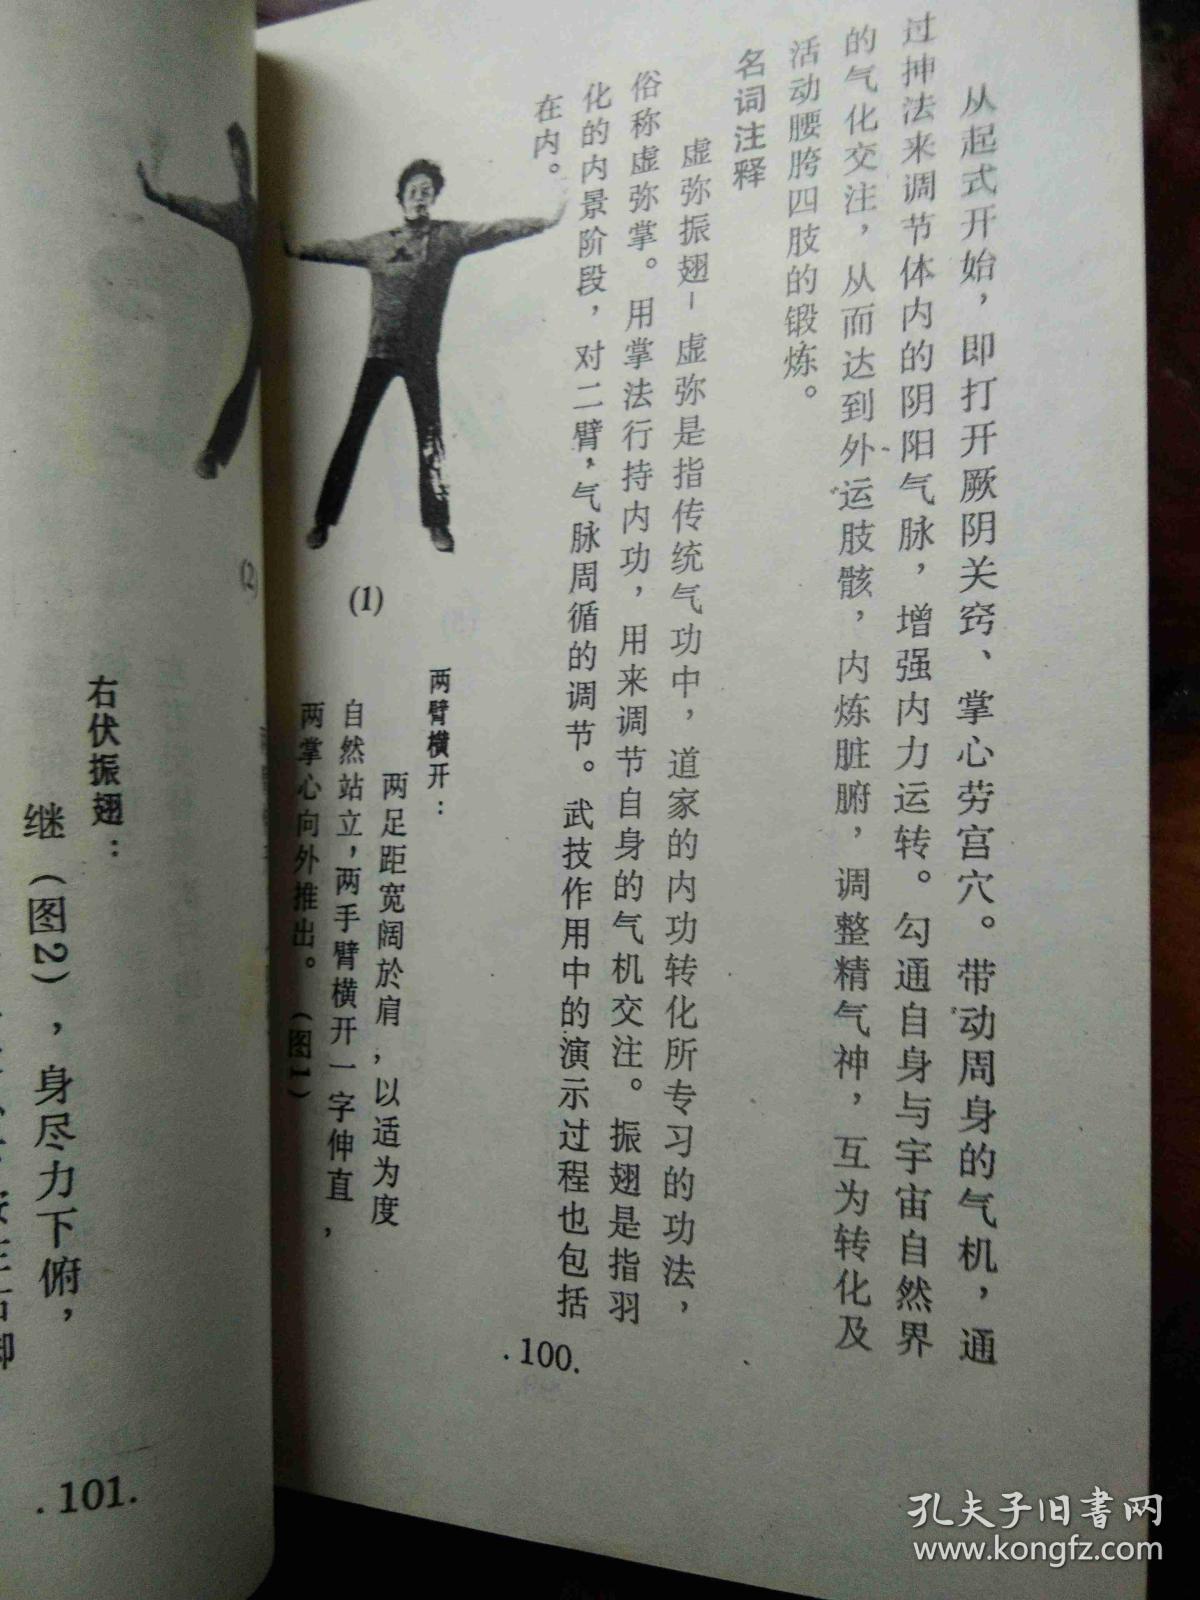 从起式开始，即打开厥阴关窍、掌心劳宫穴。带动周身的气机，通
过抻法来调节体内的阴阳气脉，增强内力运转。勾通自身与宇宙自然界
的气化交注，从而达到外运肢骸，内炼脏腑，调整精气神，互为转化及
活动腰胯四肢的锻炼。
名词注释
虚弥振翅—虚弥是指传统气功中，道家的内功转化所专习的功法，
俗称虚弥掌。用掌法行持内功，用来调节自身的气机交注。振翅是指羽
化的内景阶段，对二臂，气脉周循的调节。武技作用中的演示过程也包括
在内。
(1)
两臂横开：
两足距宽阔於肩，以适为度
自然站立，两手臂横开一字伸直，
两掌心向外推出。（图1）
.100.
(2)
右伏振翅：
继（图2），身尽力下俯，
.101.
孔夫子旧书网
www.kongfz.com